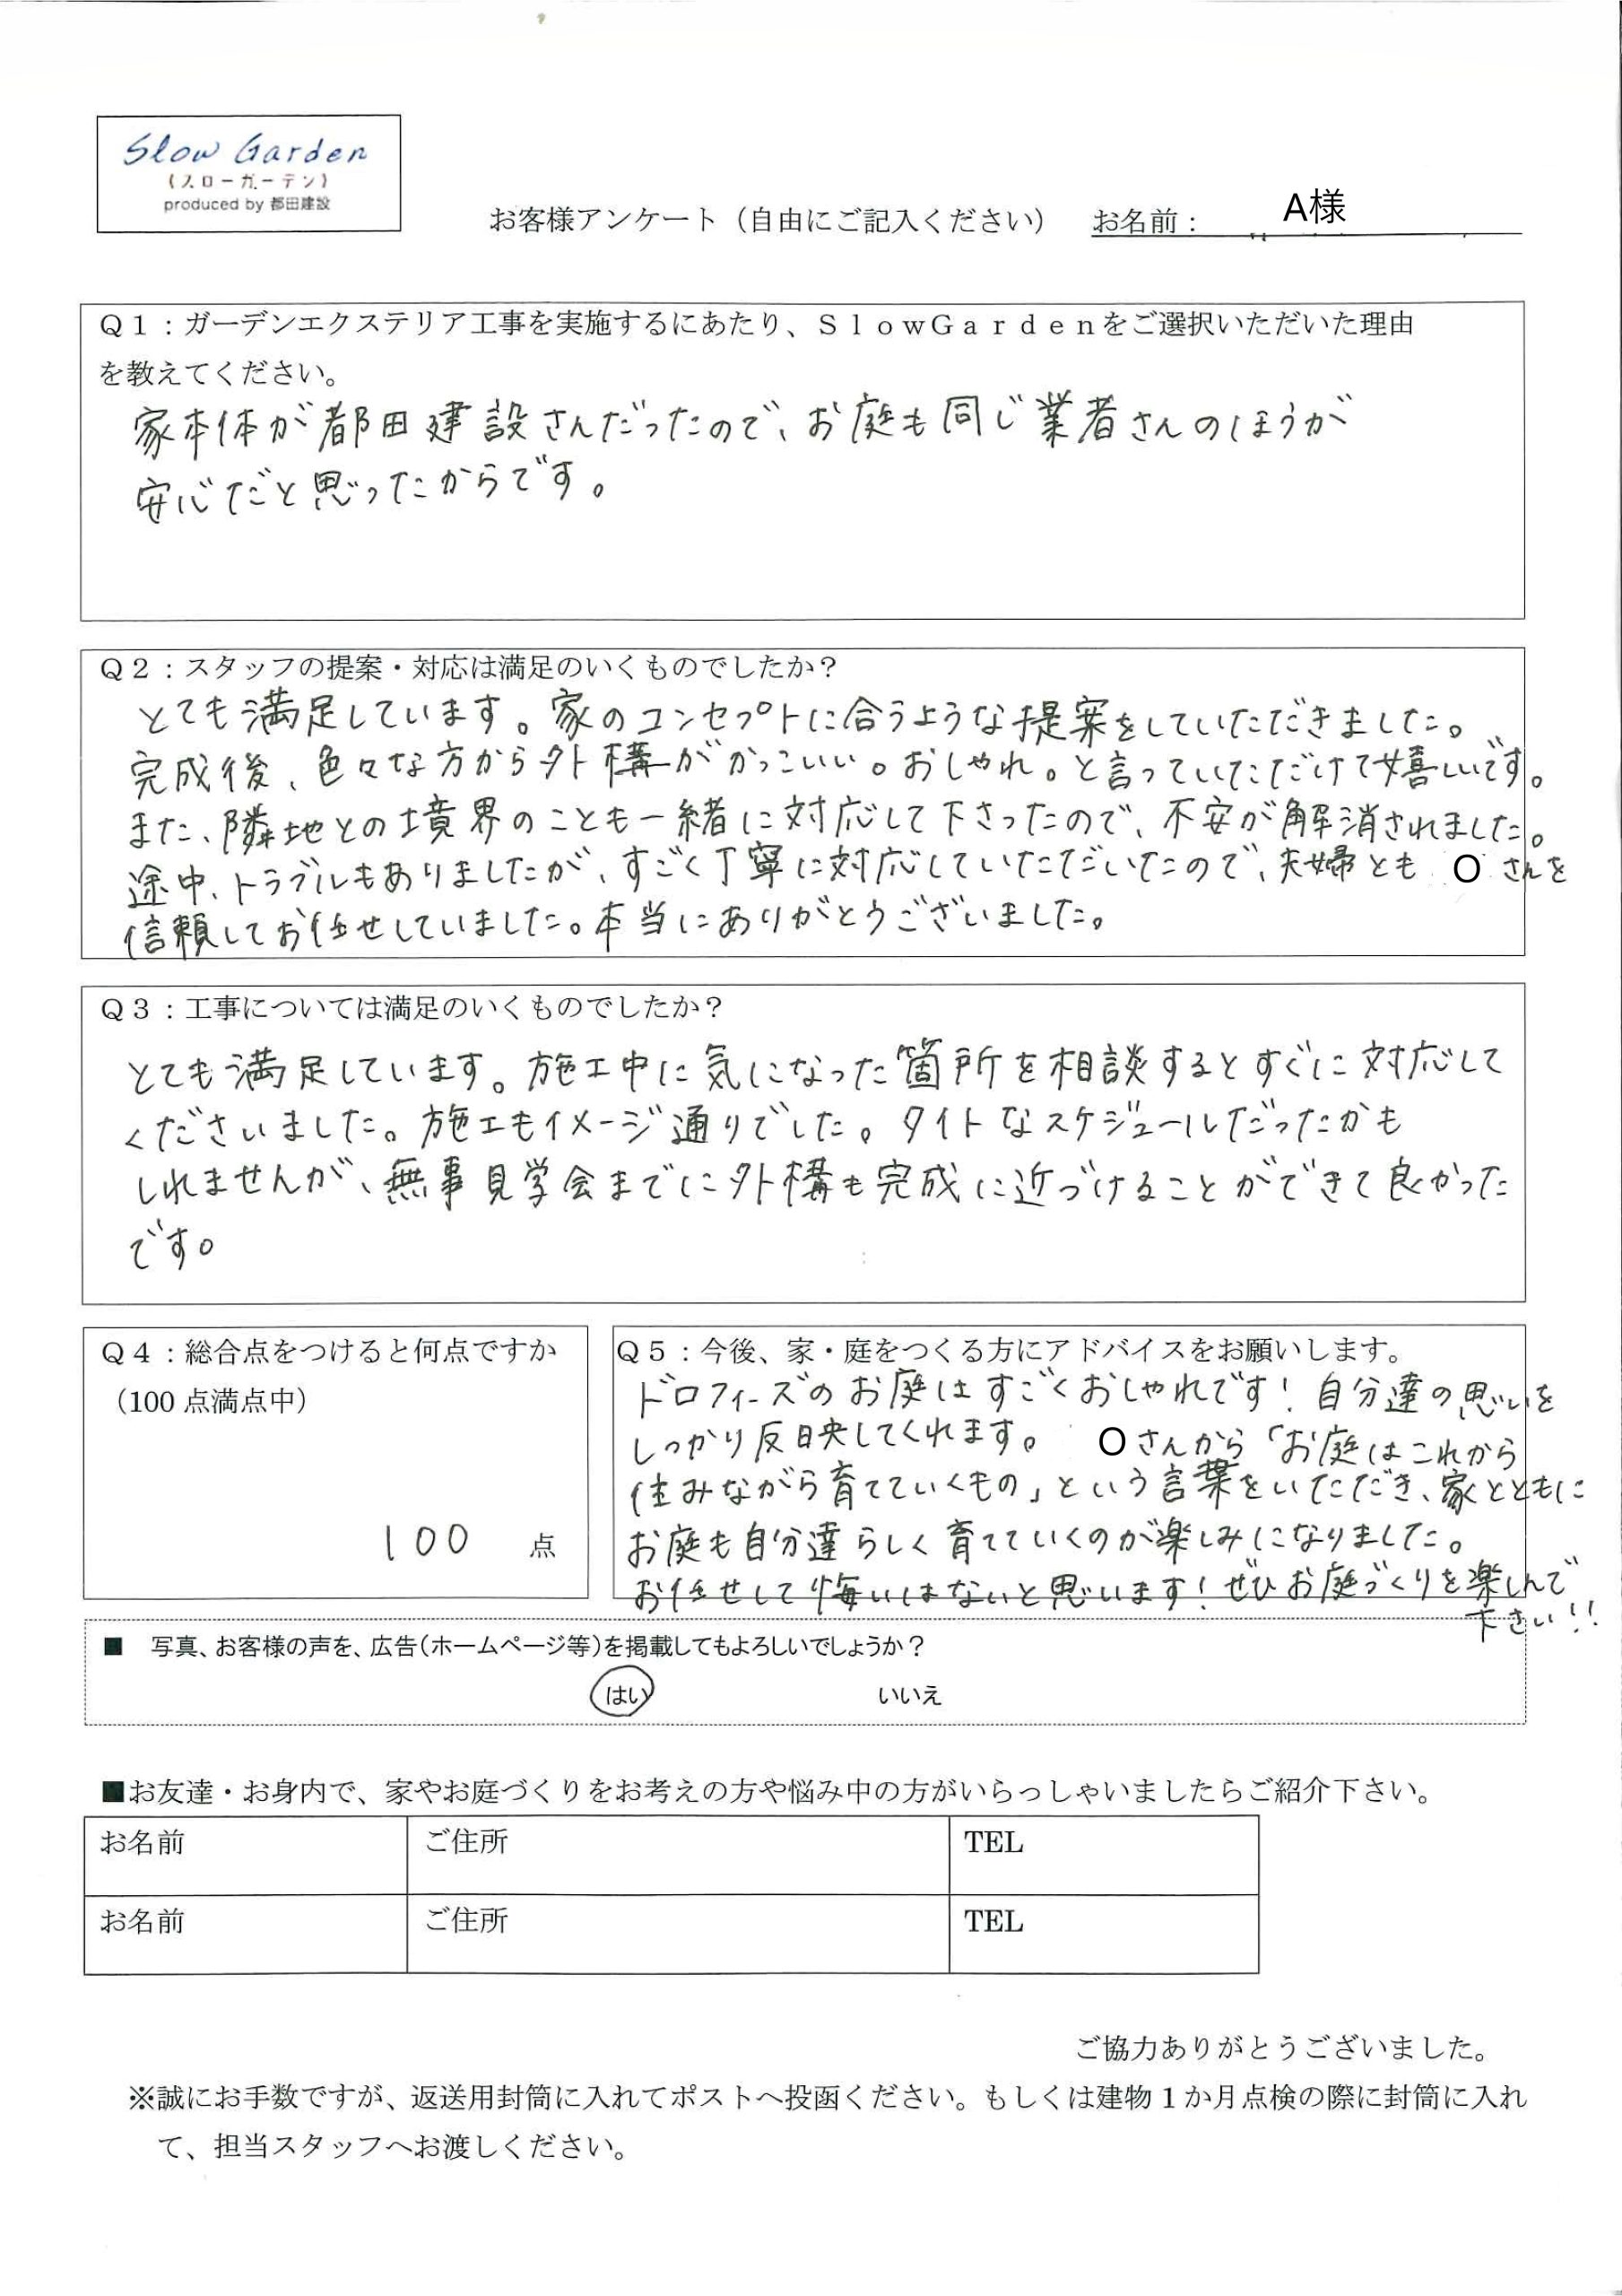 Slow Garden
(スローガーデン)
produced by 都田建設
お客様アンケート（自由にご記入ください） お名前： A様
Q1：ガーデンエクステリア工事を実施するにあたり、SlowGardenをご選択いただいた理由
を教えてください。
家本体が都田建設さんだったので、お庭も同じ業者さんのほうが
安心だと思ったからです。
Q2：スタッフの提案・対応は満足のいくものでしたか？
とても満足しています。家のコンセプトに合うような提案をしていただきました。
完成後、色々な方から外構がかっこいい。おしゃれ。と言っていただけて嬉しいです。
また、隣地との境界のことも一緒に対応して下さったので、不安が解消されました。
途中、トラブルもありましたが、すごく丁寧に対応していただいたので、夫婦とも Oさんを
信頼してお任せしていました。本当にありがとうございました。
Q3：工事については満足のいくものでしたか？
とても満足しています。施工中に気になった箇所を相談するとすぐに対応して
くださいました。施工もイメージ通りでした。タイトなスケジュールだったかも
しれませんが、無事見学会までに外構も完成に近づけることができて良かった
です。
Q4：総合点をつけると何点ですか
（100点満点中）
100 点
Q5：今後、家・庭をつくる方にアドバイスをお願いします。
ドロフィーズのお庭はすごくおしゃれです！自分達の思いを
しっかり反映してくれます。 Oさんから「お庭はこれから
住みながら育てていくもの」という言葉をいただき、家とともに
お庭も自分達らしく育てていくのが楽しみになりました。
お任せして悔いはないと思います！ぜひお庭づくりを楽しんで
下さい！！
■ 写真、お客様の声を、広告（ホームページ等）を掲載してもよろしいでしょうか？
はい いいえ
■お友達・お身内で、家やお庭づくりをお考えの方や悩み中の方がいらっしゃいましたらご紹介下さい。
お名前 ご住所 TEL
お名前 ご住所 TEL
ご協力ありがとうございました。
※誠にお手数ですが、返送用封筒に入れてポストへ投函ください。もしくは建物1か月点検の際に封筒に入れ
て、担当スタッフへお渡しください。